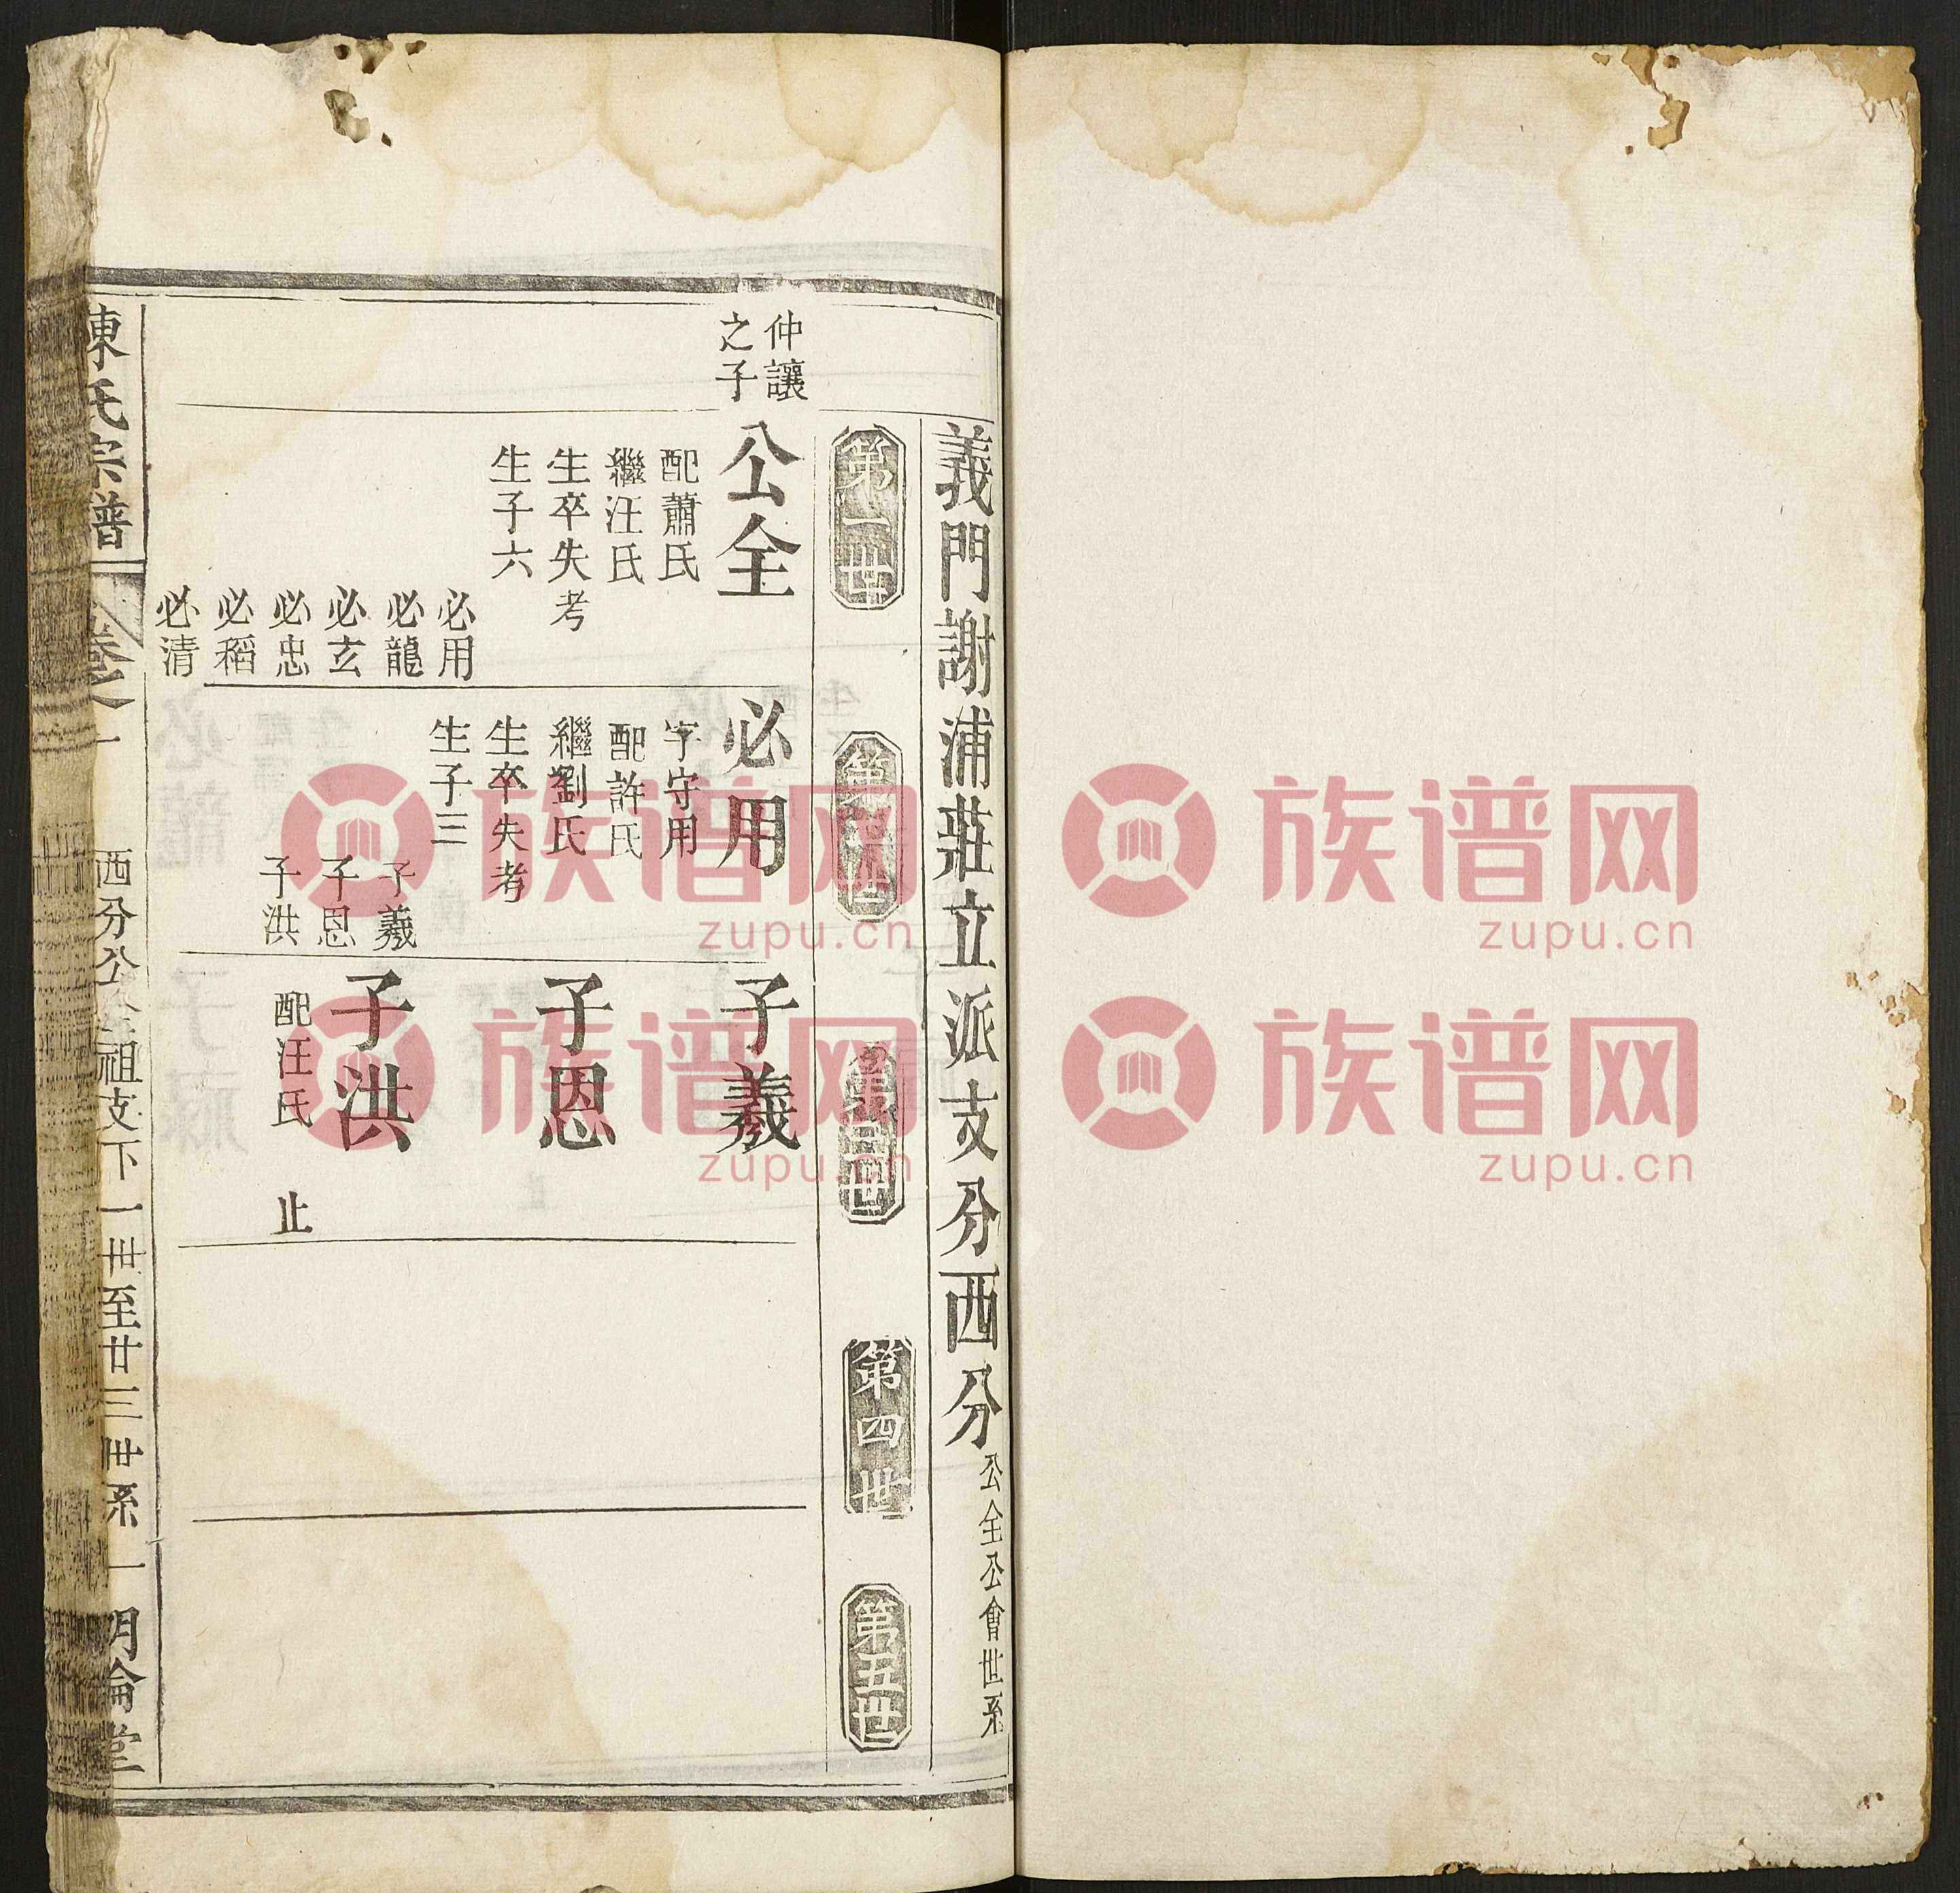 義門謝浦莊立派支分西分
公全公會世系
第一世
第二世
第三世
第四世
第五世
仲讓
之子
公全
配蕭氏
繼汪氏
生卒失考
生子六
必用
必龍
必玄
必忠
必稻
必清
必用
字守用
配許氏
繼劉氏
生卒失考
生子三
子羲
子恩
子洪
子羲
子恩
子洪
配汪氏
止
陳氏宗譜
卷之一
西分公全祖支下一世至廿三世系
一
明倫堂
族谱网
zupu.cn
族谱网
zupu.cn
族谱网
zupu.cn
族谱网
zupu.cn